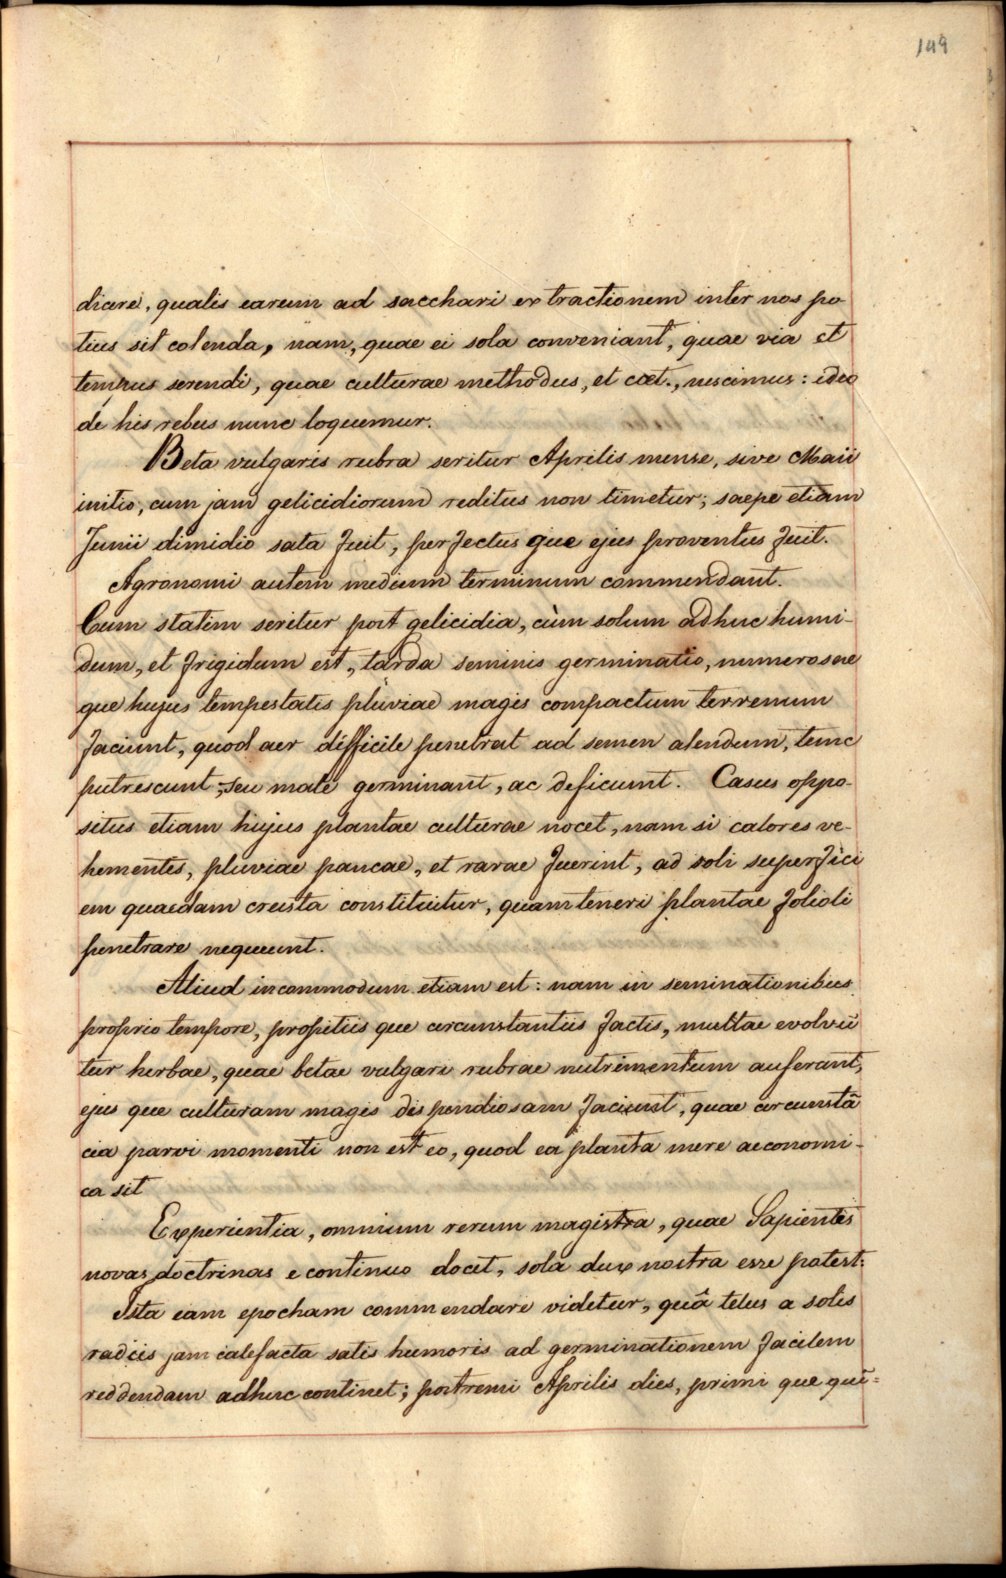 149
dicere, qualis earum ad sacchari extractionem inter nos po
tius sit colenda, nam, quae ei sola conveniant, quae via et
tempus serendi, quae culturae methodus, et cœt., nescimus: ideo
de his rebus nunc loquemur.
Beta vulgaris rubra seritur Aprilis mense, sive Maii
initio, cum jam gelicidiorum reditus non timetur; saepe etiam
Junii dimidio sata fuit, perfectus que ejus proventus fuit.
Agronomi autem medium terminum commendant.
Cum statim seritur post gelicidia, cùm solum adhuc humi-
dum, et frigidum est, tarda seminis germinatio, numerosae
que hujus tempestatis pluviae magis compactum terrenum
faciunt, quod aer difficile penetrat ad semen alendum, tunc
putrescunt, seu male germinant, ac deficiunt. Casus oppo-
situs etiam hujus plantae culturae nocet, nam si calores ve-
hementes, pluviae paucae, et rarae fuerint, ad soli superfici
em quaedam crusta constituitur, quam teneri plantae folioli
penetrare nequeunt.
Aliud incommodum etiam est: nam in seminationibus
proprio tempore, propitiis que circunstantiis factis, multae evolvũ
tur herbae, quae betae vulgari rubrae nutrimentum auferant,
ejus que culturam magis dispendiosam faciunt, quae circunstã
cia parvi momenti non est eo, quod ea planta mere aeconomi-
ca sit
Experientia, omnium rerum magistra, quae Sapientes
novas doctrinas e continuo docet, sola dux nostra esse potest:
Ista eam epocham commendare videtur, quâ telus a solis
radiis jam calefacta satis humoris ad germinationem facilem
reddendam adhuc continet; postremi Aprilis dies, primi que quĩ=